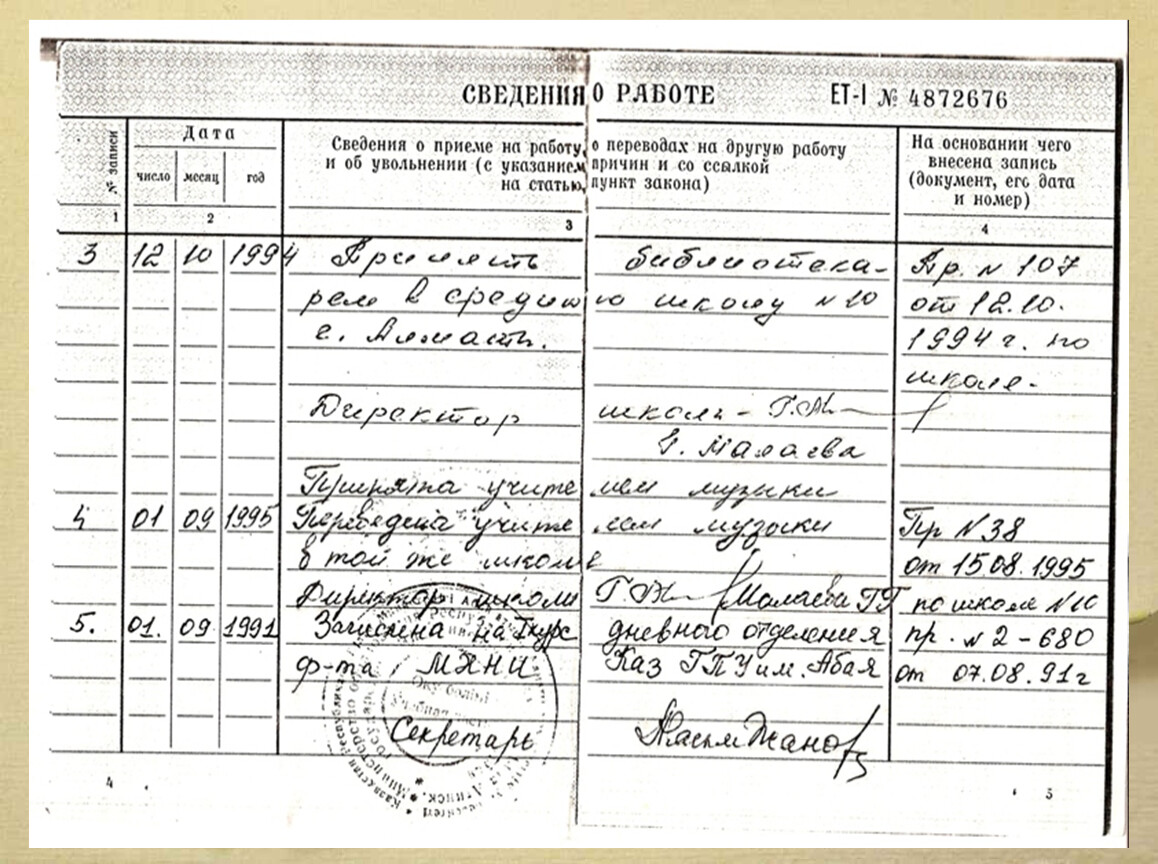 СВЕДЕНИЯ О РАБОТЕ ЕТ-I № 4872676
№ записи
Дата
число месяц год
Сведения о приеме на работу, о переводах на другую работу
и об увольнении (с указанием причин и со ссылкой
на статью, пункт закона)
На основании чего
внесена запись
(документ, его дата
и номер)
1 2 3 4
3 12 10 1994 Принять библиотека- Пр. N 107
рем в среднюю школу N 10 от 12.10.
с. Алмасты. 1994 г. по
школе.
Директор школы
Г. Малаева
Принята учителем музыки
4 01 09 1995 Переведена учителем музыки Пр N 38
в той же школе от 15.08.1995
Директор школы Малаева ГГ по школе N 10
5. 01. 09 1991 Зачислена на I курс дневного отделения пр. N 2-680
ф-та МХНИ Каз ГПУ им. Абая от 07.08.91г
Секретарь
4 5